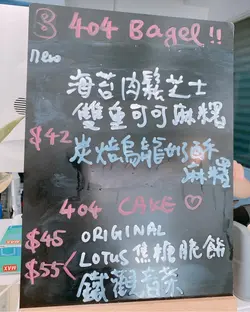 $ 404 Bagel !!
new
海苔肉鬆芝士
雙重可可麻糬
$42 炭焙烏龍奶酥
麻糬
404 CAKE ♡
$45 ORIGINAL
$55< LOTUS焦糖脆餅
鐵觀音茶
MAX